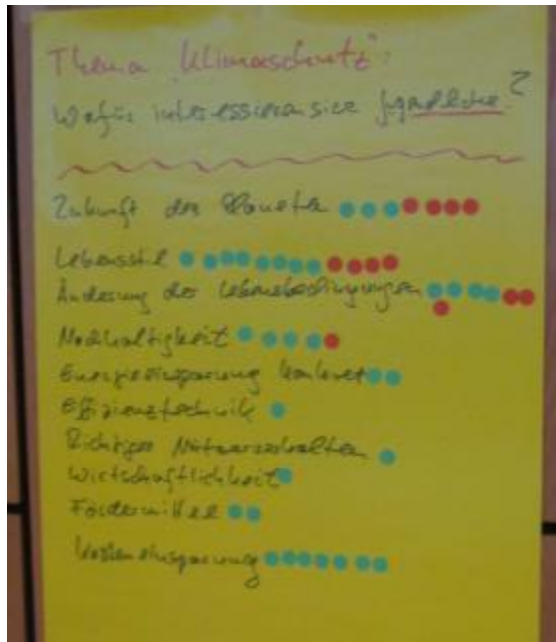 Thema "Klimaschutz":
Wofür interessieren sich Jugendliche?
Zukunft des Planeten
Lebensstil
Änderung der Lebensbedingungen
Nachhaltigkeit
Energieeinsparung konkret
Effizienztechnik
Richtiges Nutzerverhalten
Wirtschaftlichkeit
Fördermittel
Kosteneinsparung